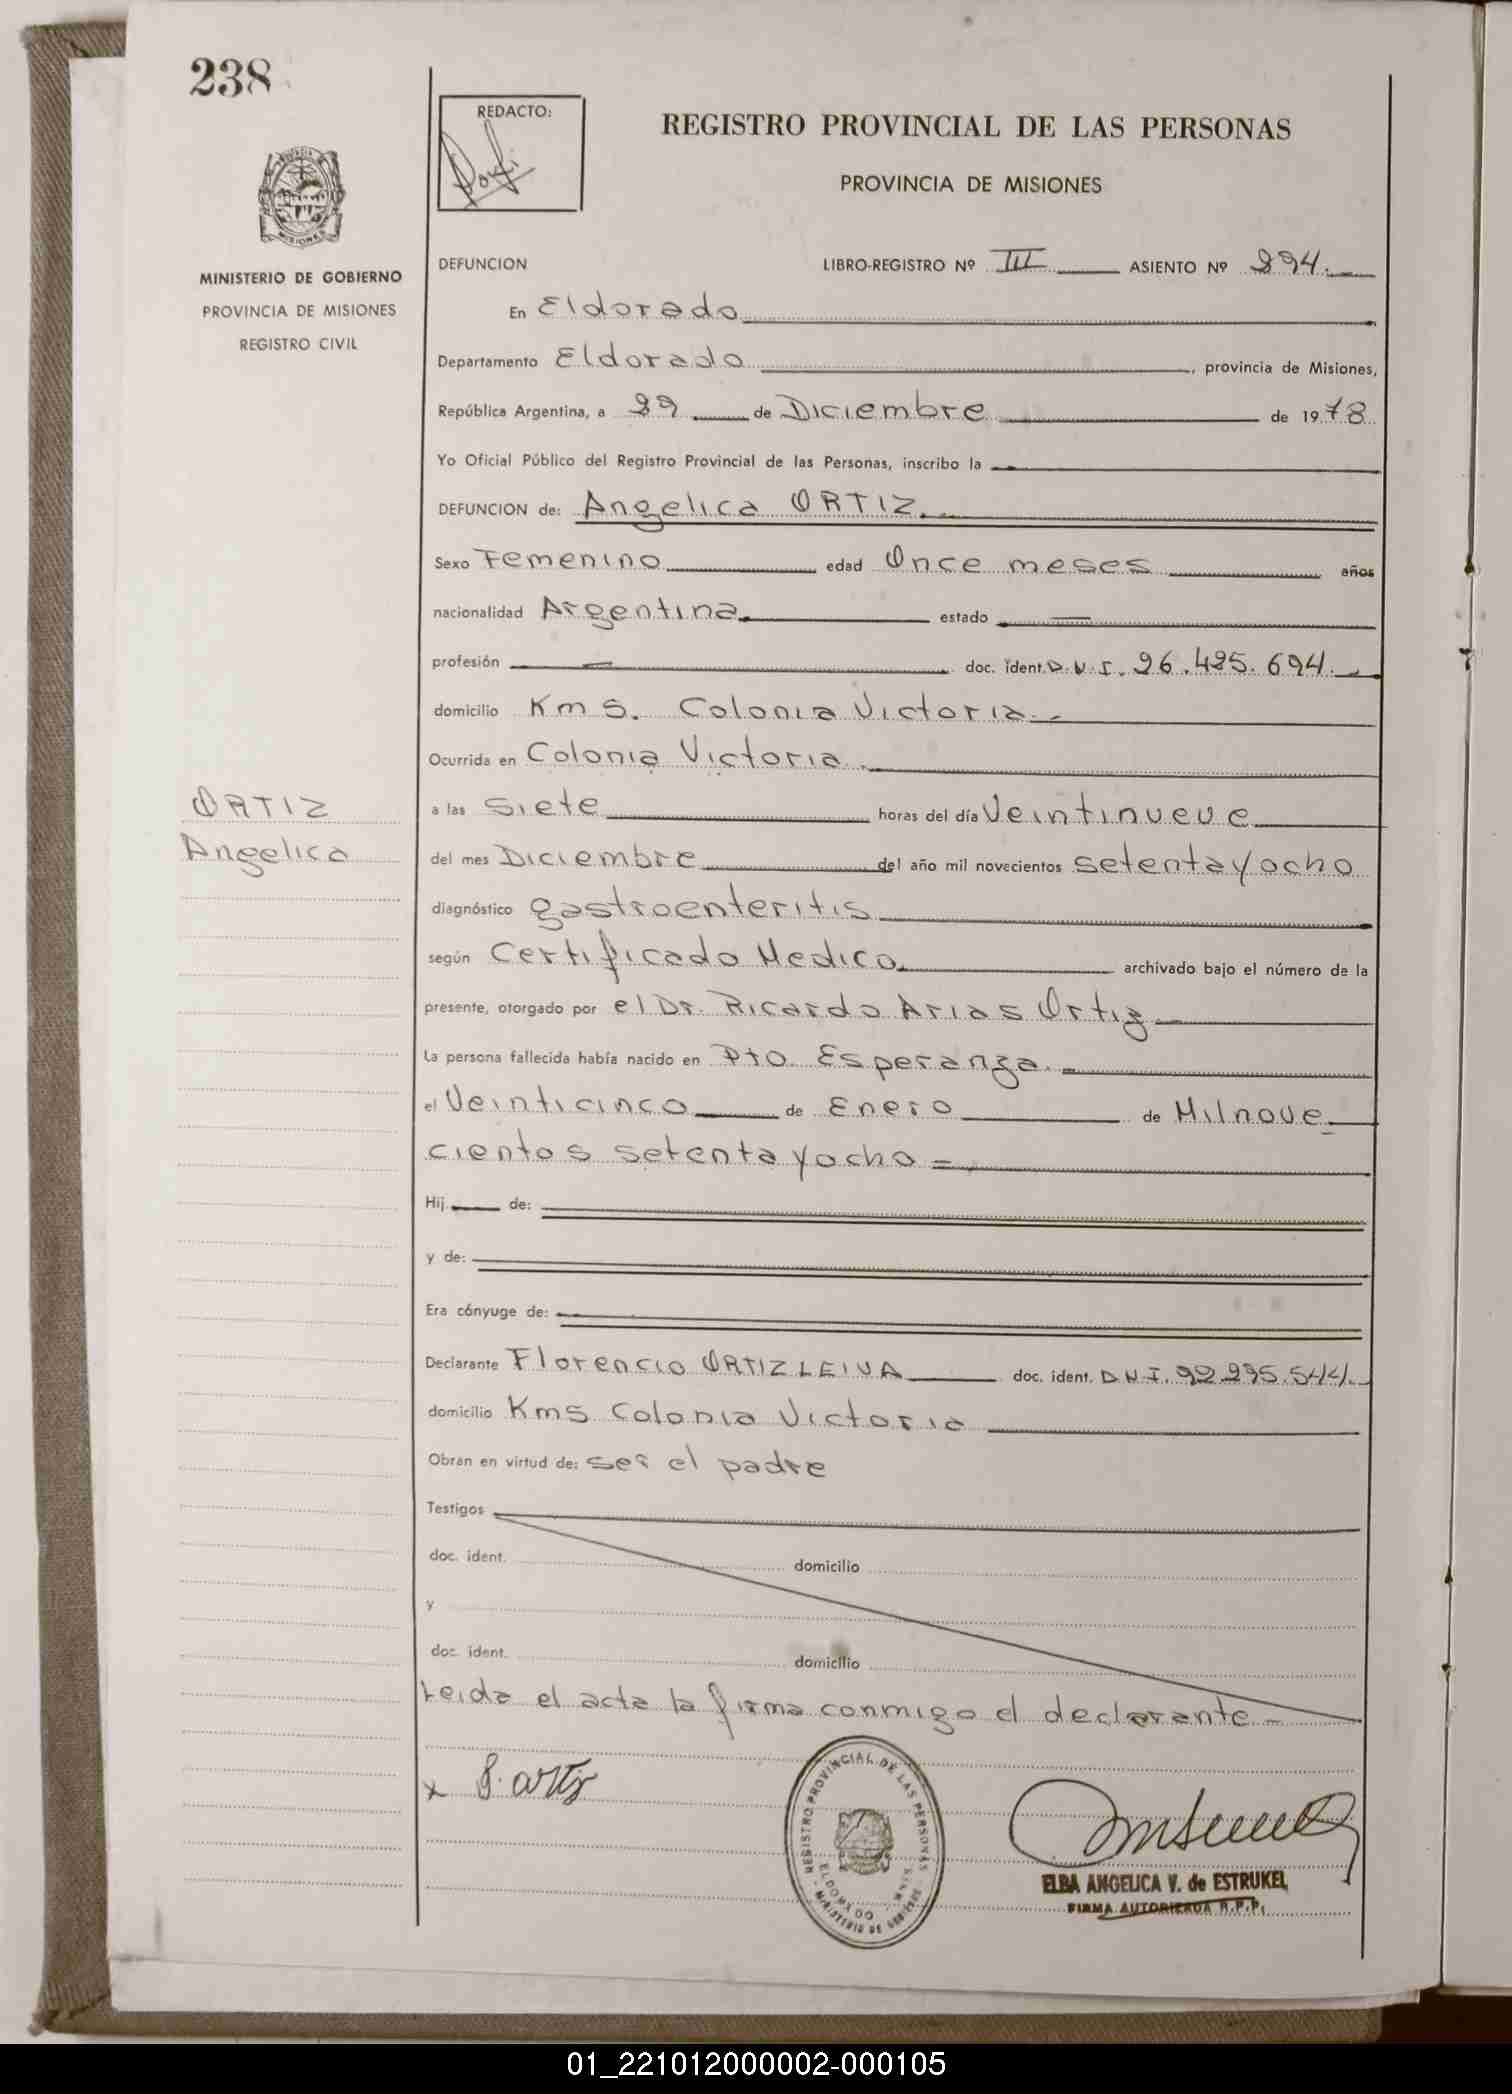 238
REDACTO:
REGISTRO PROVINCIAL DE LAS PERSONAS
PROVINCIA DE MISIONES
MISIONES
MINISTERIO DE GOBIERNO
PROVINCIA DE MISIONES
REGISTRO CIVIL
DEFUNCION LIBRO-REGISTRO Nº III ASIENTO Nº 294.
En Eldorado
Departamento Eldorado, provincia de Misiones,
República Argentina, a 29 de Diciembre de 1978
Yo Oficial Público del Registro Provincial de las Personas, inscribo la
DEFUNCION de: Angelica ORTIZ.
Sexo Femenino edad Once meses años
nacionalidad Argentina. estado —
profesión — doc. ident. D.N.I. 26.425.694.
domicilio Km 5. Colonia Victoria.-
Ocurrida en Colonia Victoria.
ORTIZ
Angelica
a las Siete horas del día Veintinueve
del mes Diciembre del año mil novecientos setenta y ocho
diagnóstico gastroenteritis
según Certificado Medico. archivado bajo el número de la
presente, otorgado por el Dr. Ricardo Arias Ortiz
La persona fallecida había nacido en Pto. Esperanza.
el Veinticinco de Enero de Milnove
cientos setenta y ocho =
Hij de:
y de:
Era cónyuge de:
Declarante Florencio ORTIZ LEIVA doc. ident. D.N.I. 92.295.544.
domicilio Km5 Colonia Victoria
Obran en virtud de: ser el padre
Testigos
doc. ident. domicilio
y
doc. ident. domicilio
Leida el acta la firma conmigo el declarante.-
x F. Ortiz
REGISTRO PROVINCIAL DE LAS PERSONAS
ELDORADO
MINISTERIO DE GOBIERNO
ELBA ANGELICA V. de ESTRUKEL
FIRMA AUTORIZADA R.P.P.
01_221012000002-000105